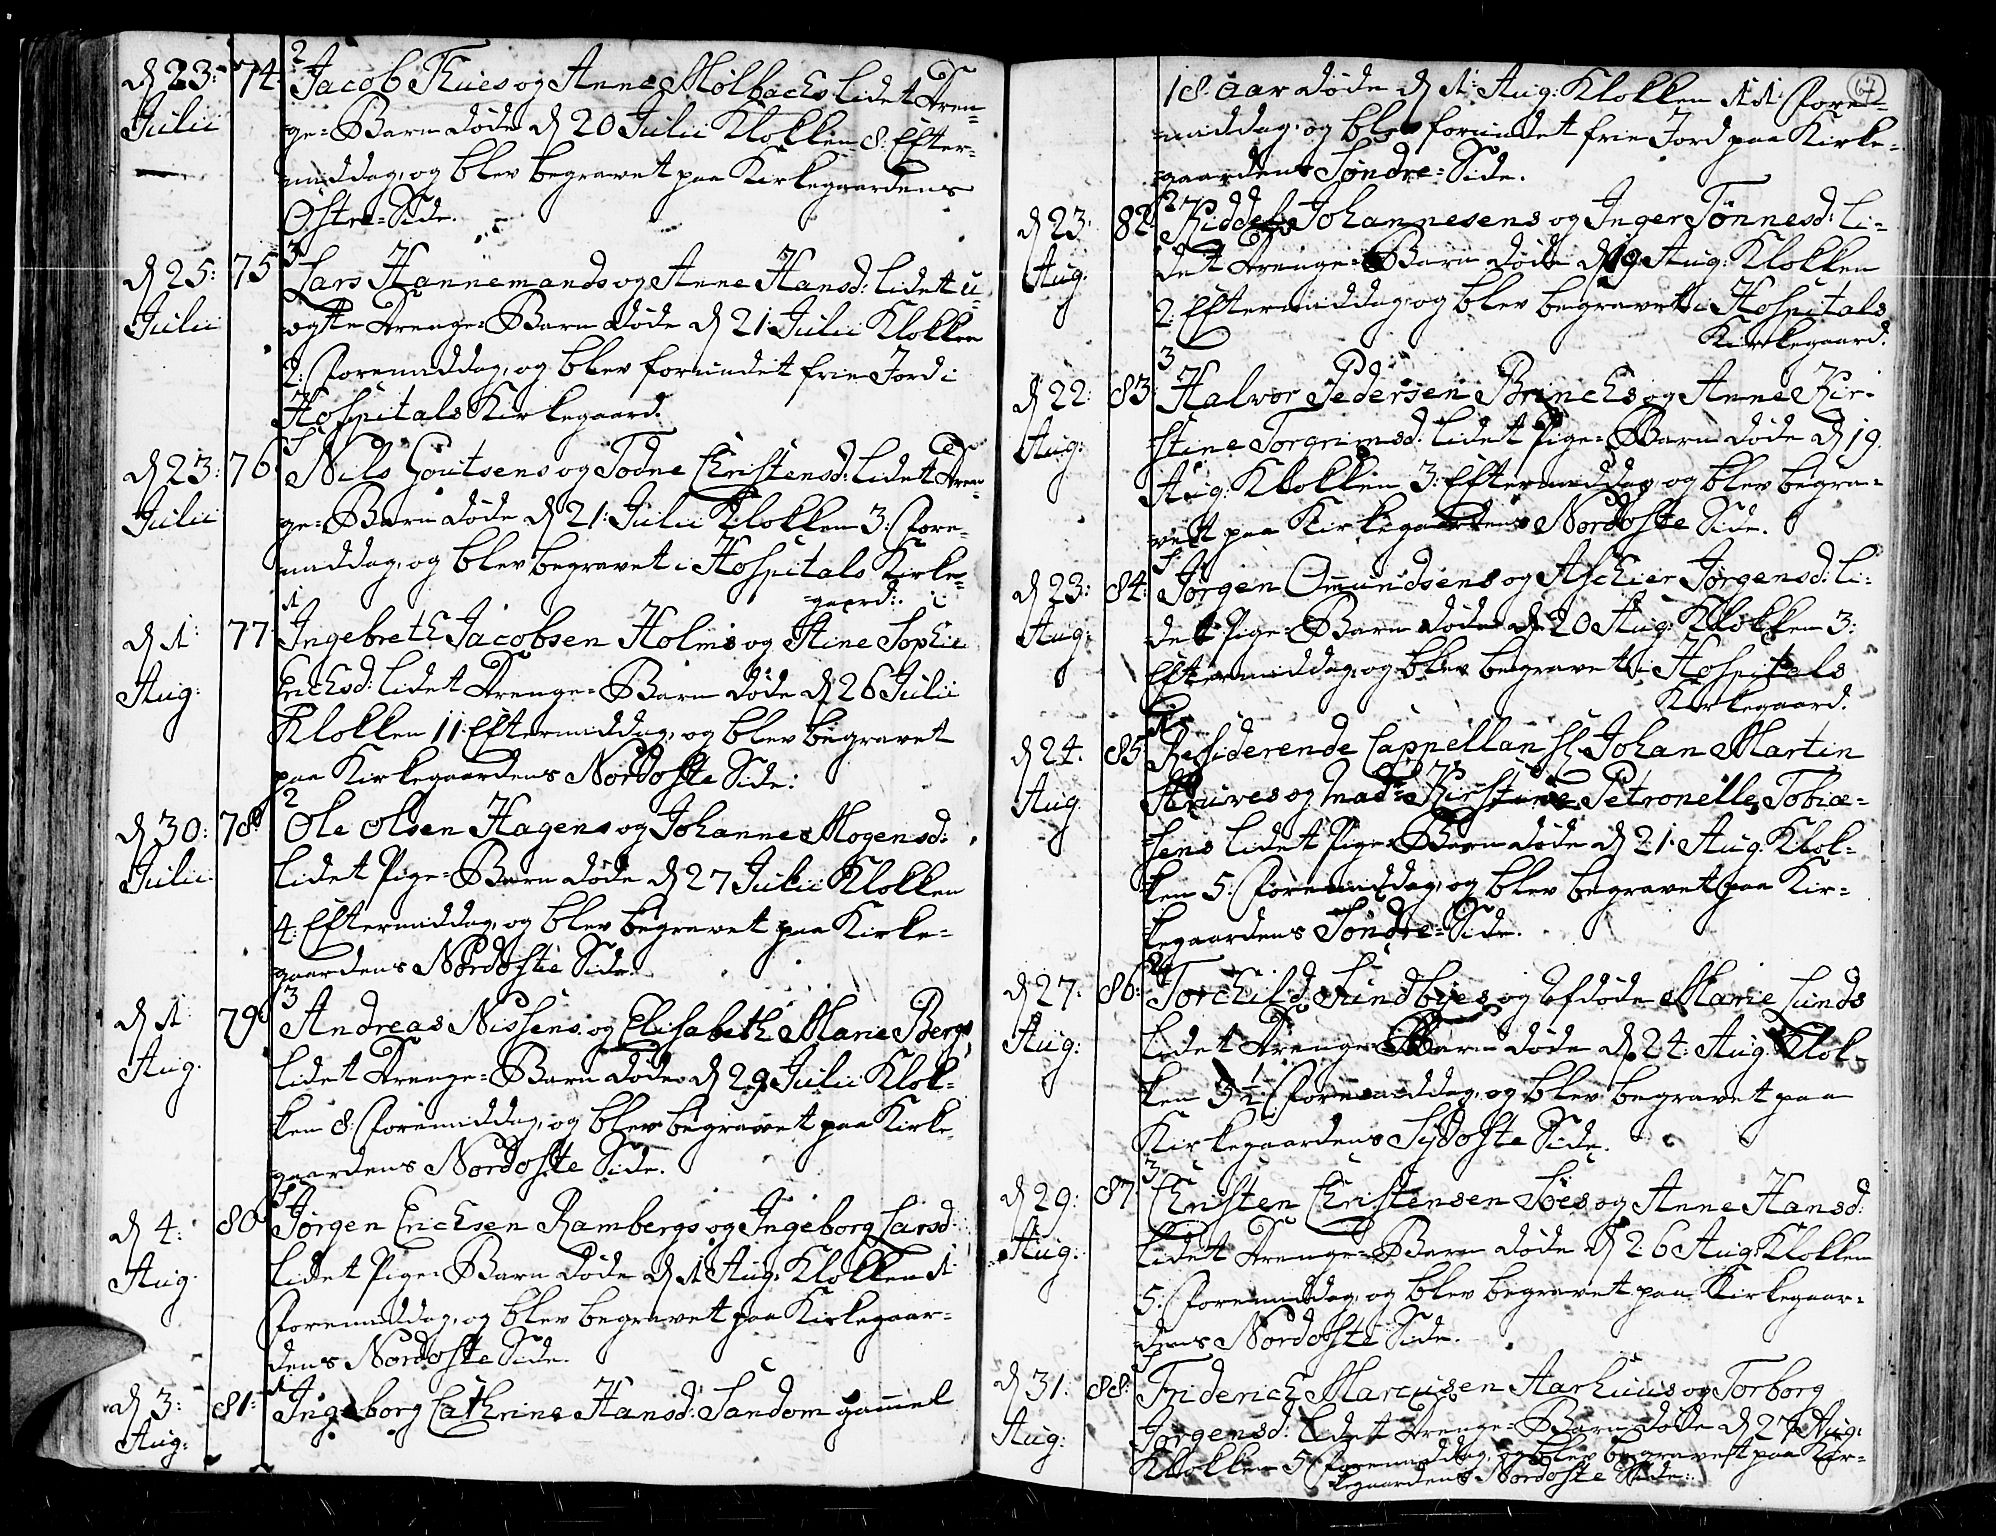 d 23: 74. 2 Jacob Thues og Anne Mølbachs lidet Dren-
Julii ge-Barn døde d 20 Julii Klokken 8. Efter-
middag, og blev begravet paa Kirkegaardens
Østre-Side.
d 25: 75 3 Lars Hannemands og Anne Hansd: lidet u-
Julii ægte Drenge-Barn døde d 21 Julii Klokken
2. Formiddag, og blev forundet frie Jord i
Hospitals Kirkegaard.
d 23: 76. Nils Goutsens og Todne Christensd: lidet Dren-
Julii ge-Barn døde d 21: Julii Klokken 3: Fore-
middag, og blev begravet i Hospitals Kirke-
gaard.
d 1: 77 1 Ingebreth Jacobsen Holms og Stine Sophie
Aug: Erichsd: lidet Drenge-Barn døde d 26 Julii
Klokken 11: Eftermiddag, og blev begravet
paa Kirkegaardens Nordoste Side.
d 30: 78 2 Ole Olsen Hagens og Johanne Mogensd:
Julii lidet Pige-Barn døde d 27 Julii Klokken
4: Eftermiddag, og blev begravet paa Kirke-
gaardens Nordoste Side.
d 1: 79 3 Andreas Nissens og Elisabeth Marie Bergs
Aug. lidet Drenge-Barn døde d 29 Julii Klok-
ken 8. Foremiddag, og blev begravet paa Kirke-
gaardens Nordoste Side.
d 4: 80 Jørgen Erichsen Rambergs og Ingeborg Larsd:
Aug. lidet Pige-Barn døde d 1 Aug. Klokken 1.
Foremiddag, og blev begravet paa Kirkegaar-
dens Nordoste Side.
d 3: 81: 1 Ingeborg Cathrine Hansd: Sandom gammel
Aug:
67
18. Aar døde d 1: Aug: Klokken 11. Fore-
middag, og blev forundet frie Jord paa Kirke-
gaardens Søndre-Side.
d 23: 82 2 Kiddel Johannesens og Inger Tønnesd: li-
Aug: det Drenge-Barn døde d 19 Aug: Klokken
2. Eftermiddag, og blev begravet i Hospitals
Kirkegaard.
d 22: 83: 3 Halvor Pedersen Brinchs og Anne Kir-
Aug: stine Torgrimsd: lidet Pige-Barn døde d 19.
Aug: Klokken 3: Eftermiddag, og blev begra-
vet paa Kirkegaardens Nordoste Side.
d 23: 84: Jørgen Omundsens og Aschier Jørgensd: li-
Aug: det Pige-Barn døde d 20 Aug: Klokken 3:
Eftermiddag, og blev begravet i Hospitals
Kirkegaard.
d 24. 85 1 Residerende Cappellan Hr Johan Martin
Aug. og Mad: Kirstine Petronelle Tobiæ-
sens lidet Pige-Barn døde d 21. Aug. Klok-
ken 5. Foremiddag, og blev begravet paa Kir-
kegaardens Søndre-Side.
d 27. 86: 2 Torchild Sundbyes og afdøde Marie Lunds
Aug: lidet Drenge-Barn døde d 24: Aug: Klok-
ken 3½: Foremiddag, og blev begravet paa
Kirkegaardens Sydoste Side.
d 29: 87 3 Christen Christensen Søes og Anne Hansd:
Aug: lidet Drenge-Barn døde d 26 Aug: Klokken
5: Foremiddag, og blev begravet paa Kirkegaar-
dens Nordoste Side.
d 31. 88: Friderich Marcusen Aarhuus og Torborg
Aug: Jørgensd: lidet Drenge-Barn døde d 27 Aug:
Klokken 5 Foremiddag, og blev begravet paa Kir-
kegaardens Nordoste Side.